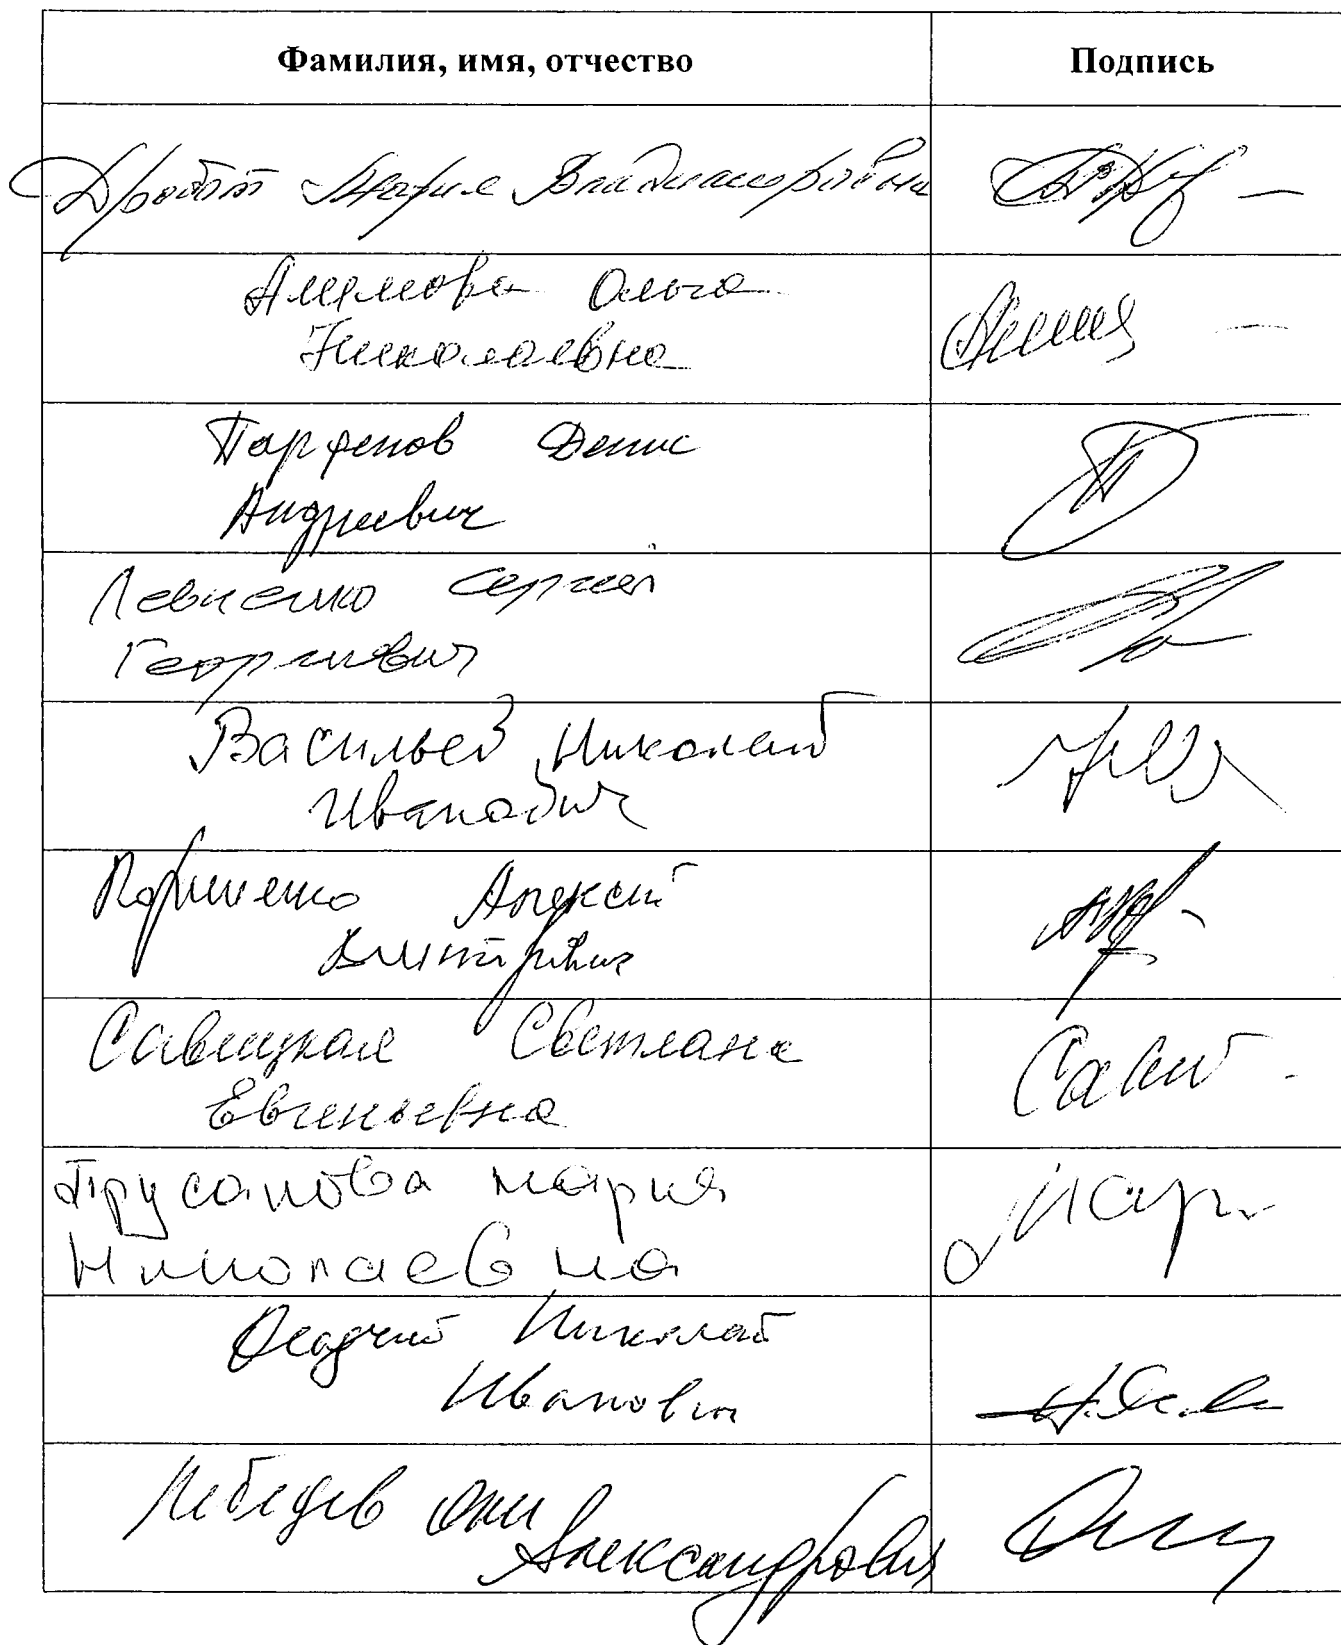 Фамилия, имя, отчество Подпись
Дробот Мария Владимировна
Алимова Ольга
Николаевна
Парфенов Денис
Андреевич
Левченко Сергей
Георгиевич
Васильев Николай
Иванович
Корниенко Алексей
Дмитриевич
Савицкая Светлана
Евгеньевна
Прусакова Мария
Николаевна
Осадчий Николай
Иванович
Лебедев Олег
Александрович